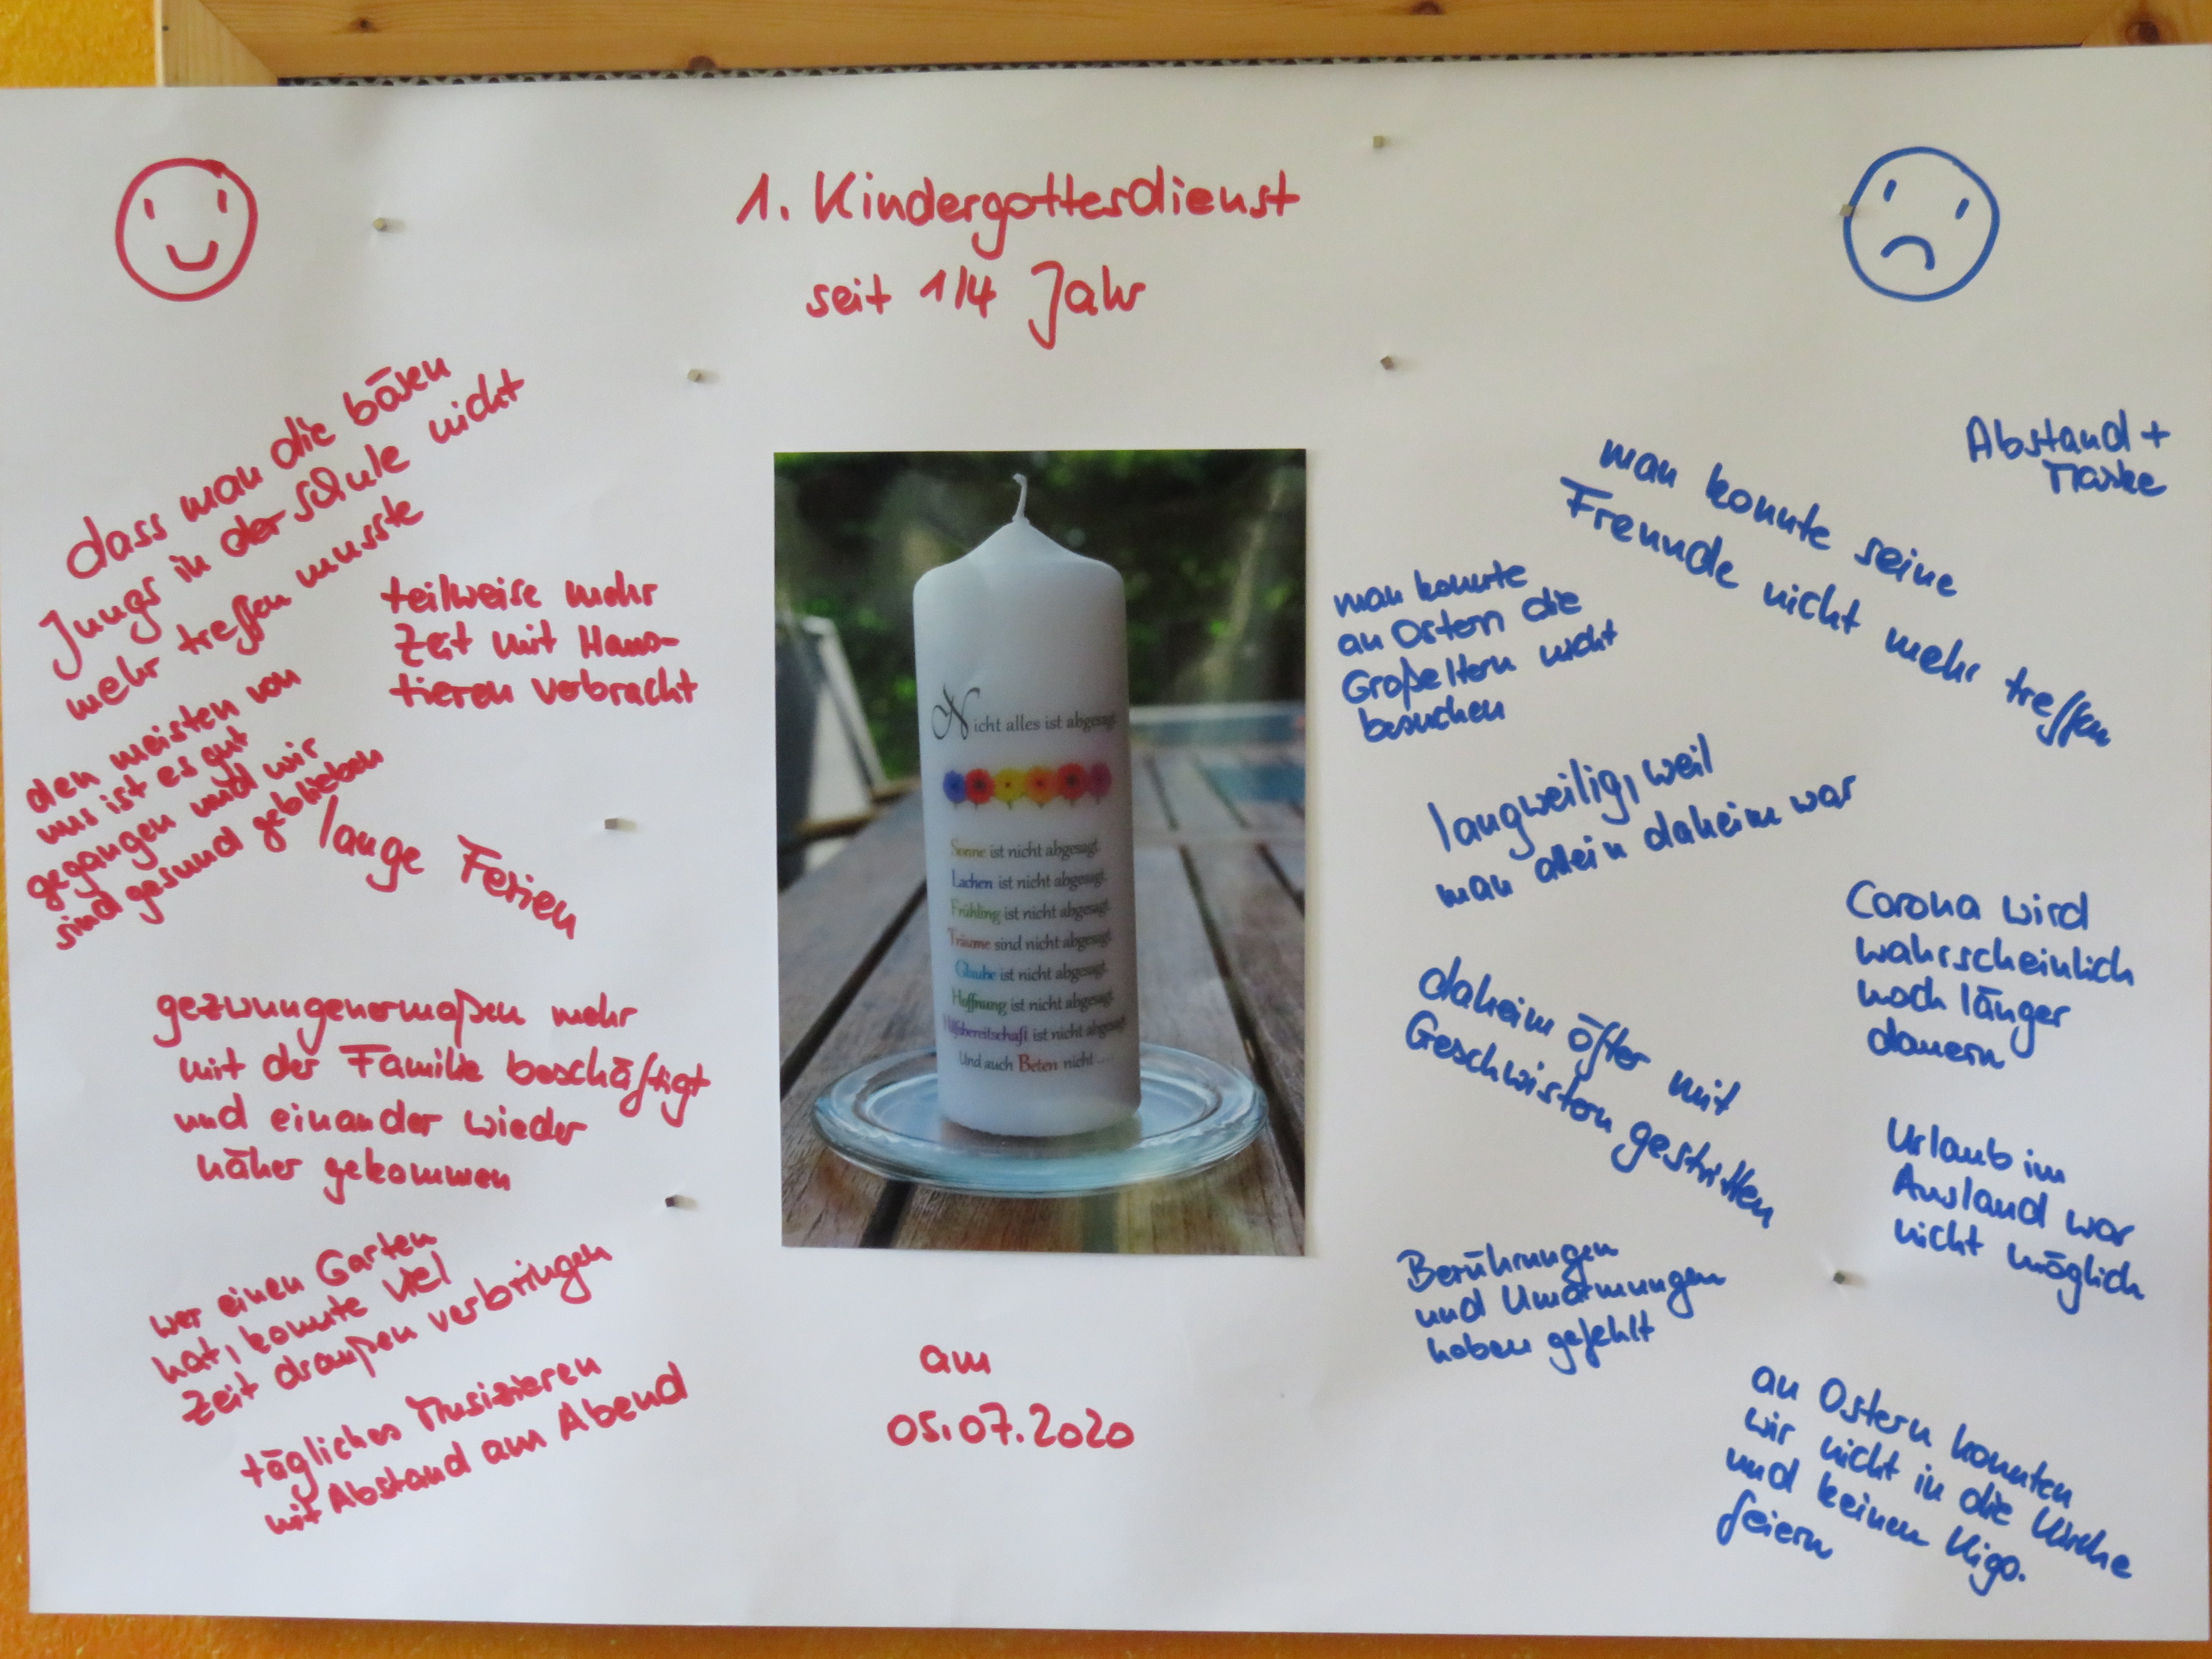 1. Kindergottesdienst
seit 1/4 Jahr
dass man die bösen
Jungs in der Schule nicht
mehr treffen musste
teilweise mehr
Zeit mit Haus-
tieren verbracht
den meisten von
uns ist es gut
gegangen und wir
sind gesund geblieben
lange Ferien
gezwungenermaßen mehr
mit der Familie beschäftigt
und einander wieder
näher gekommen
wer einen Garten
hat, konnte viel
Zeit draußen verbringen
tägliches Musizieren
mit Abstand am Abend
Nicht alles ist abgesagt
Sonne ist nicht abgesagt.
Lachen ist nicht abgesagt.
Frühling ist nicht abgesagt.
Träume sind nicht abgesagt.
Glaube ist nicht abgesagt.
Hoffnung ist nicht abgesagt.
Hilfsbereitschaft ist nicht abgesagt
Und auch Beten nicht ....
am
05.07.2020
Abstand +
Maske
man konnte seine
Freunde nicht mehr treffen
man konnte
an Ostern die
Großeltern nicht
besuchen
langweilig, weil
man allein daheim war
Corona wird
wahrscheinlich
noch länger
dauern
daheim öfter mit
Geschwistern gestritten
Urlaub im
Ausland war
nicht möglich
Berührungen
und Umarmungen
haben gefehlt
an Ostern konnten
wir nicht in die Kirche
und keinen Kigo.
feiern